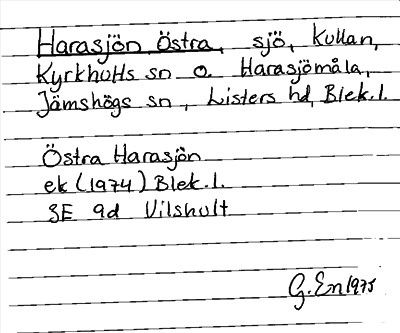 Harasjön Östra, sjö, Kullan,
Kyrkhults sn o. Harasjömåla,
Jämshögs sn, Listers hd, Blek.l.
Östra Harasjön
ek (1974) Blek.l.
3E 9d Vilshult
G.En 1975